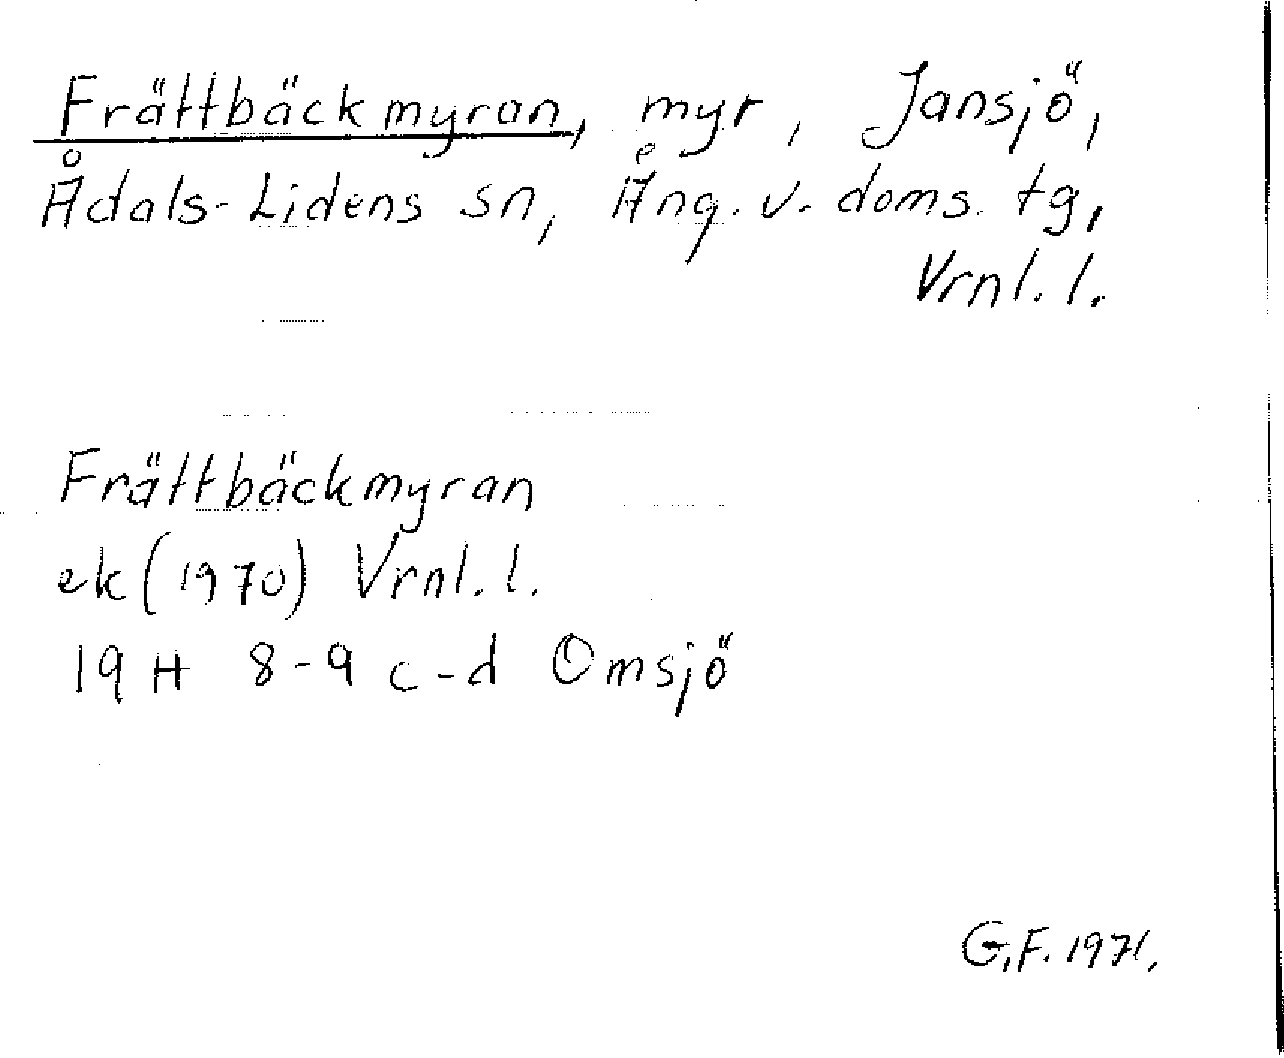 Frättbäckmyran, myr, Jansjö,
Ådals-Lidens sn, Ång. v. doms. tg,
Vrnl. l.
Frättbäckmyran
ek (1970) Vrnl. l.
19 H 8-9 c-d Omsjö
G.F. 1971.